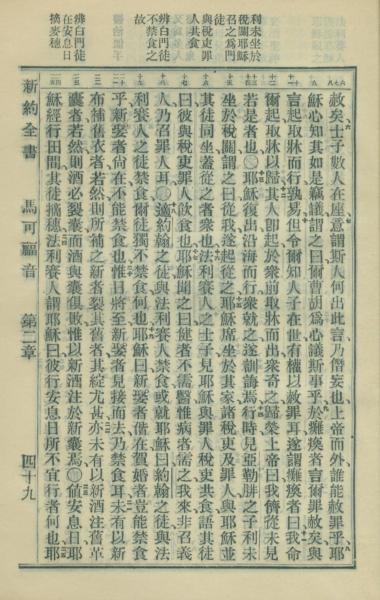 利未坐於
稅關耶穌
召之為門
徒
與稅吏罪
人共食
辨白門徒
不禁食之
故
辨白門徒
在安息日
摘麥穗
赦矣士子數人在座意謂斯人何出此言乃僭妄也上帝而外誰能赦罪乎耶
穌心知其如是竊議謂之曰爾曹胡為心議斯事乎於癱瘓者言爾罪赦矣與
言起取牀以行孰易但令爾知人子在世有權以赦罪耳遂謂癱瘓者曰我命
爾起取牀以歸其人即起於眾前取牀而出眾奇之歸榮上帝曰我儕從未見
若是者也〇耶穌復出沿海而行眾就之遂訓誨焉行時見亞勒腓之子利未
坐於稅關謂之曰從我遂起從之耶穌席坐於其家諸稅吏及罪人與耶穌並
其徒同坐蓋從之者眾也法利賽人之士子見耶穌與罪人稅吏共食語其徒
曰彼與稅吏罪人飲食也耶穌聞之曰健者不需醫惟病者需之我來非召義
人乃召罪人耳〇適約翰之徒與法利賽人禁食或就耶穌曰約翰之徒與法
利賽人之徒禁食爾徒獨不禁食何也耶穌曰新娶者偕在賀婚者豈能禁食
乎新娶者尚在不能禁食也惟日將至新娶者見接而去乃禁食耳未有以新
布補舊衣者若然則所補之新者裂其舊者其綻尤甚亦未有以新酒注舊革
囊者若然則酒必裂囊而酒與囊俱敗惟以新酒注於新囊焉〇值安息日耶
穌經行田間其徒摘穗法利賽人謂耶穌曰彼行安息日所不宜行者何也耶
新約全書 馬可福音 第二章 四十九